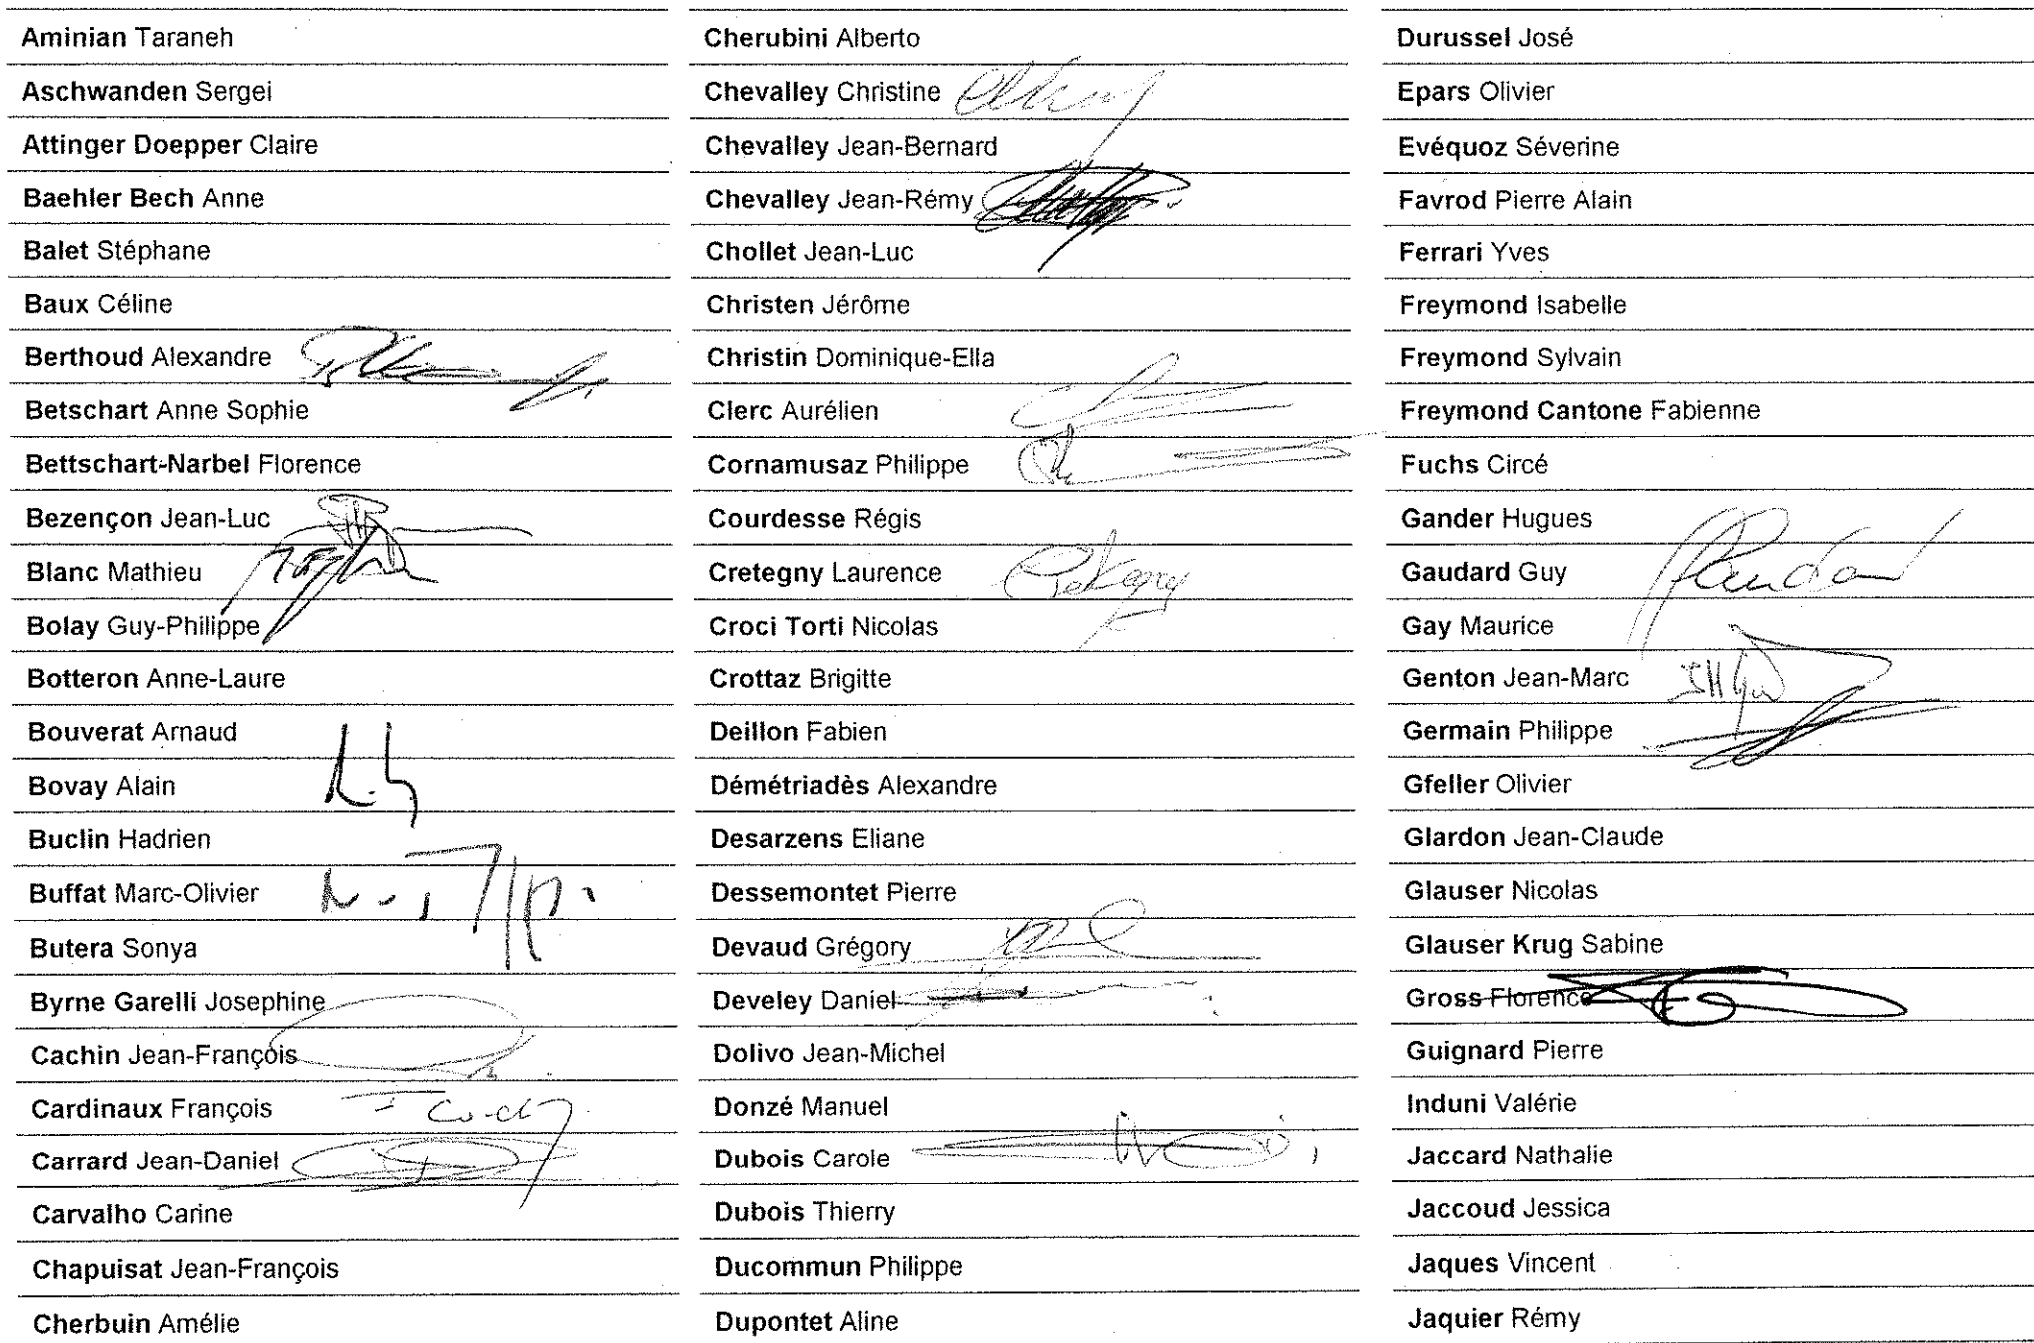 Aminian Taraneh
Aschwanden Sergei
Attinger Doepper Claire
Baehler Bech Anne
Balet Stéphane
Baux Céline
Berthoud Alexandre
Betschart Anne Sophie
Bettschart-Narbel Florence
Bezençon Jean-Luc
Blanc Mathieu
Bolay Guy-Philippe
Botteron Anne-Laure
Bouverat Arnaud
Bovay Alain
Buclin Hadrien
Buffat Marc-Olivier
Butera Sonya
Byrne Garelli Josephine
Cachin Jean-François
Cardinaux François
Carrard Jean-Daniel
Carvalho Carine
Chapuisat Jean-François
Cherbuin Amélie
Cherubini Alberto
Chevalley Christine
Chevalley Jean-Bernard
Chevalley Jean-Rémy
Chollet Jean-Luc
Christen Jérôme
Christin Dominique-Ella
Clerc Aurélien
Cornamusaz Philippe
Courdesse Régis
Cretegny Laurence Cretegny
Croci Torti Nicolas
Crottaz Brigitte
Deillon Fabien
Démétriadès Alexandre
Desarzens Eliane
Dessemontet Pierre
Devaud Grégory
Develey Daniel
Dolivo Jean-Michel
Donzé Manuel
Dubois Carole
Dubois Thierry
Ducommun Philippe
Dupontet Aline
Durussel José
Epars Olivier
Evéquoz Séverine
Favrod Pierre Alain
Ferrari Yves
Freymond Isabelle
Freymond Sylvain
Freymond Cantone Fabienne
Fuchs Circé
Gander Hugues
Gaudard Guy Gaudard
Gay Maurice
Genton Jean-Marc
Germain Philippe
Gfeller Olivier
Glardon Jean-Claude
Glauser Nicolas
Glauser Krug Sabine
Gross Florence
Guignard Pierre
Induni Valérie
Jaccard Nathalie
Jaccoud Jessica
Jaques Vincent
Jaquier Rémy